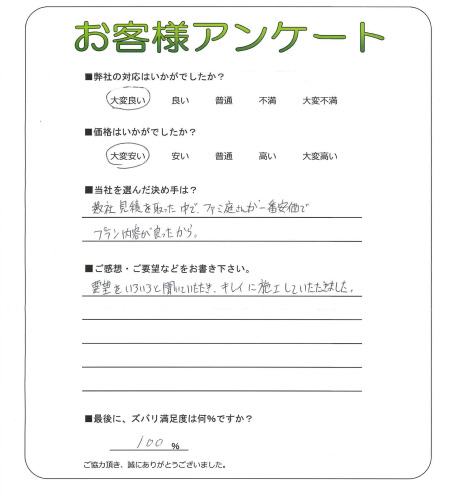 お客様アンケート
■弊社の対応はいかがでしたか？
大変良い 良い 普通 不満 大変不満
■価格はいかがでしたか？
大変安い 安い 普通 高い 大変高い
■当社を選んだ決め手は？
数社見積を取った中で、ファミ庭さんが一番安価で
プラン内容が良ったから。
■ご感想・ご要望などをお書き下さい。
要望をいろいろと聞いていただき、キレイに施工していただきました。
■最後に、ズバリ満足度は何％ですか？
100 %
ご協力頂き、誠にありがとうございました。